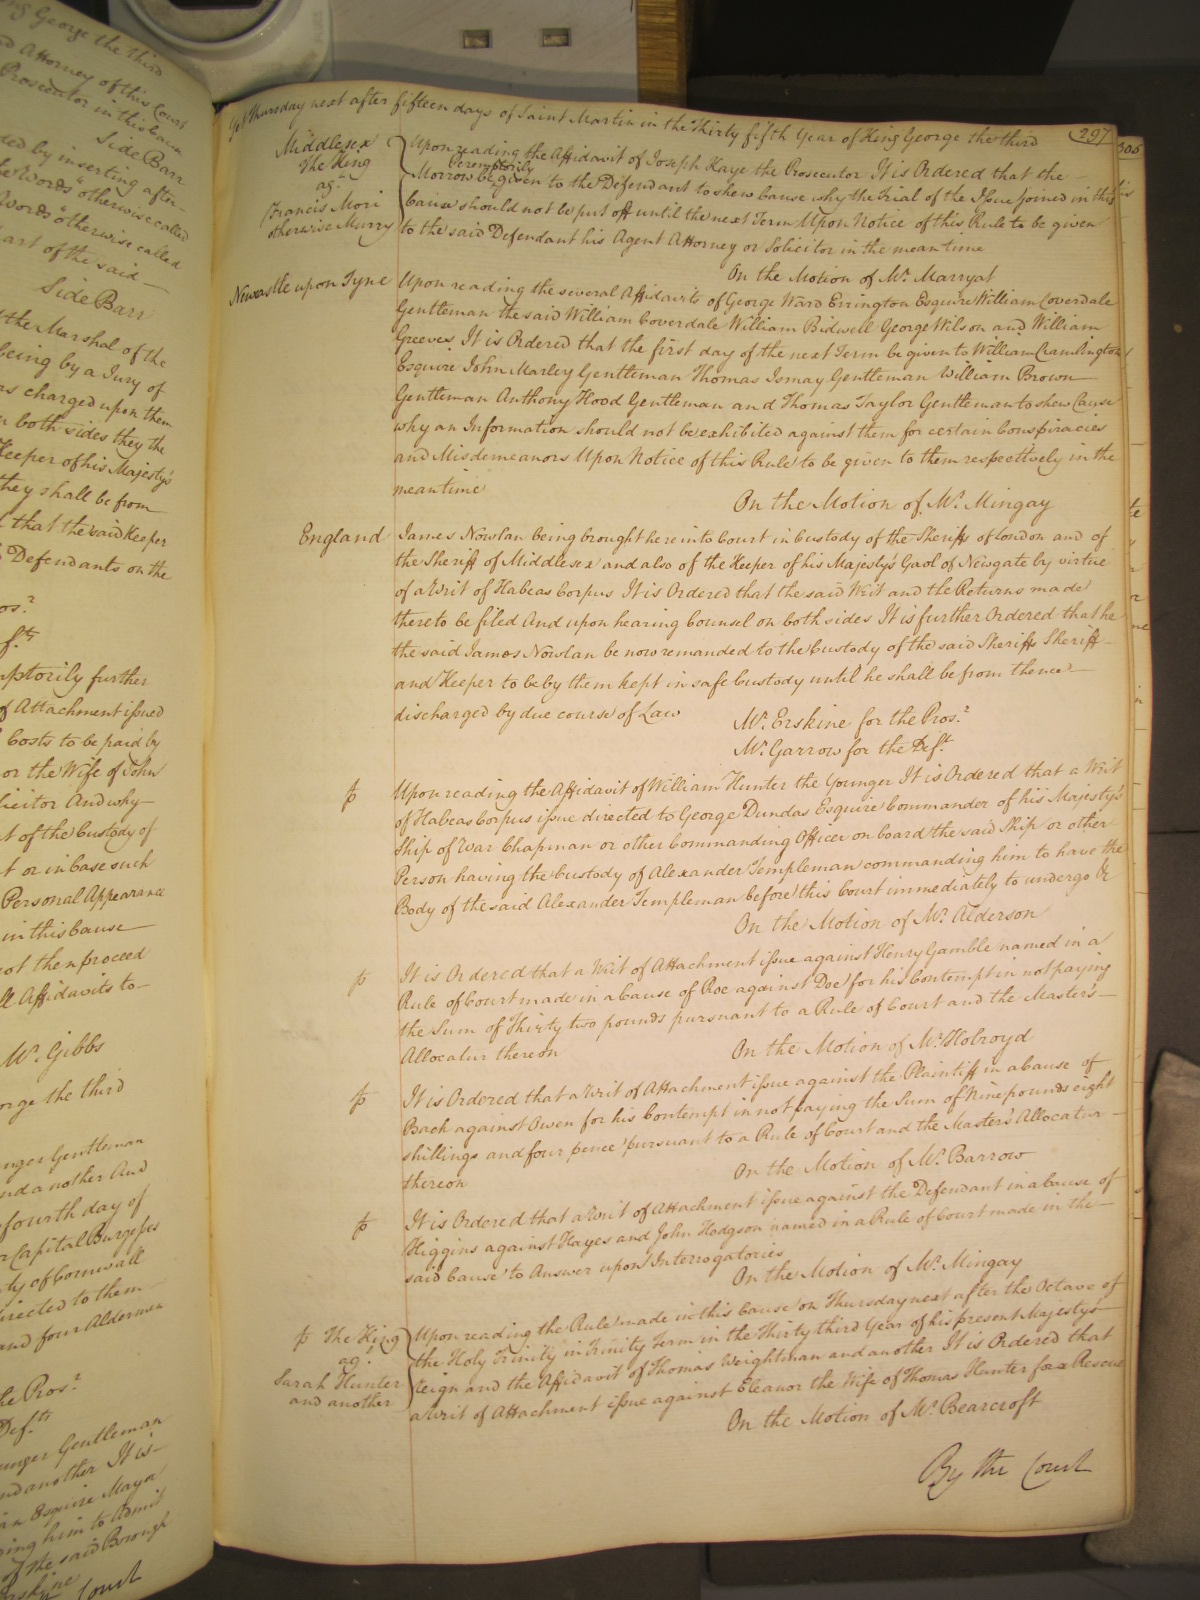 ng George the third
nd Attorney of this Court
Prosecutor in this Cause
Side Barr
ded by inserting after
the Words "otherwise called
Words "otherwise called
art of the said
Side Barr
the Marshal of the
being by a Jury of
as charged upon them
n both sides they the
Keeper of his Majesty's
they shall be from
that the said Keeper
Defendants on the
os.r
f.ts
mptorily further
of Attachment issued
Costs to be paid by
or the Wife of John
licitor And why
t of the Custody of
t or in Case such
Personal Appearance
in this Cause
not then proceed
ll Affidavits to
Mr. Gibbs
orge the third
nger Gentleman
and another And
fourth day of
r Capital Burgesses
ty of Cornwall
irected to them
and four Aldermen
he Pros.r
Def.ts
unger Gentleman
nd another It is
an Esquire Mayor
ing him to Admit
of the said Borough
rskine
Court
Yet Thursday next after fifteen days of Saint Martin in the Thirty fifth Year of King George the third
297
Middlesex
The King
ag.t
Francis Mori
otherwise Murry
Upon reading the Affidavit of Joseph Kaye the Prosecutor It is Ordered that the
Peremptorily
Morrow be given to the Defendant to shew Cause why the Trial of the Issue joined in this
Cause should not be put off until the next Term Upon Notice of this Rule to be given
to the said Defendant his Agent Attorney or Solicitor in the mean time
On the Motion of Mr. Marryat
Newcastle upon Tyne
Upon reading the several Affidavits of George Ward Errington Esquire William Coverdale
Gentleman the said William Coverdale William Bidwell George Wilson and William
Greeves It is Ordered that the first day of the next Term be given to William Cramlington
Esquire John Marley Gentleman Thomas Ismay Gentleman William Brown
Gentleman Anthony Hood Gentleman and Thomas Taylor Gentleman to shew Cause
why an Information should not be exhibited against them for certain Conspiracies
and Misdemeanors Upon Notice of this Rule to be given to them respectively in the
mean time
On the Motion of Mr. Mingay
England
James Nowlan being brought here into Court in Custody of the Sheriffs of London and of
the Sheriff of Middlesex and also of the Keeper of his Majesty's Gaol of Newgate by virtue
of a Writ of Habeas Corpus It is Ordered that the said Writ and the Returns made
thereto be filed And upon hearing Counsel on both sides It is further Ordered that he
the said James Nowlan be now remanded to the Custody of the said Sheriffs Sheriff
and Keeper to be by them kept in safe Custody until he shall be from thence
discharged by due course of Law
Mr. Erskine for the Pros.r
Mr. Garrow for the Def.t
Upon reading the Affidavit of William Hunter the Younger It is Ordered that a Writ
of Habeas Corpus issue directed to George Dundas Esquire Commander of his Majesty's
Ship of War Chapman or other Commanding Officer on board the said Ship or other
Person having the Custody of Alexander Templeman commanding him to have the
Body of the said Alexander Templeman before this Court immediately to undergo &c
On the Motion of Mr. Alderson
It is Ordered that a Writ of Attachment issue against Henry Gamble named in a
Rule of Court made in a Cause of Roe against Doe for his Contempt in not paying
the Sum of Thirty two pounds pursuant to a Rule of Court and the Master's
Allocatur thereon
On the Motion of Mr. Holroyd
It is Ordered that a Writ of Attachment issue against the Plaintiff in a Cause of
Back against Owen for his Contempt in not paying the Sum of Nine pounds eight
shillings and four pence pursuant to a Rule of Court and the Master's Allocatur
thereon
On the Motion of Mr. Barrow
It is Ordered that a Writ of Attachment issue against the Defendant in a Cause of
Higgins against Hayes and John Hodgson named in a Rule of Court made in the
said Cause to Answer upon Interrogatories
On the Motion of Mr. Mingay
The King
ag.t
Sarah Hunter
and another
Upon reading the Rule made in this Cause on Thursday next after the Octave of
the Holy Trinity in Trinity Term in the Thirty third Year of his present Majesty's
reign and the Affidavit of Thomas Weightman and another It is Ordered that
a Writ of Attachment issue against Eleanor the Wife of Thomas Hunter for a Rescue
On the Motion of Mr. Bearcroft
By the Court